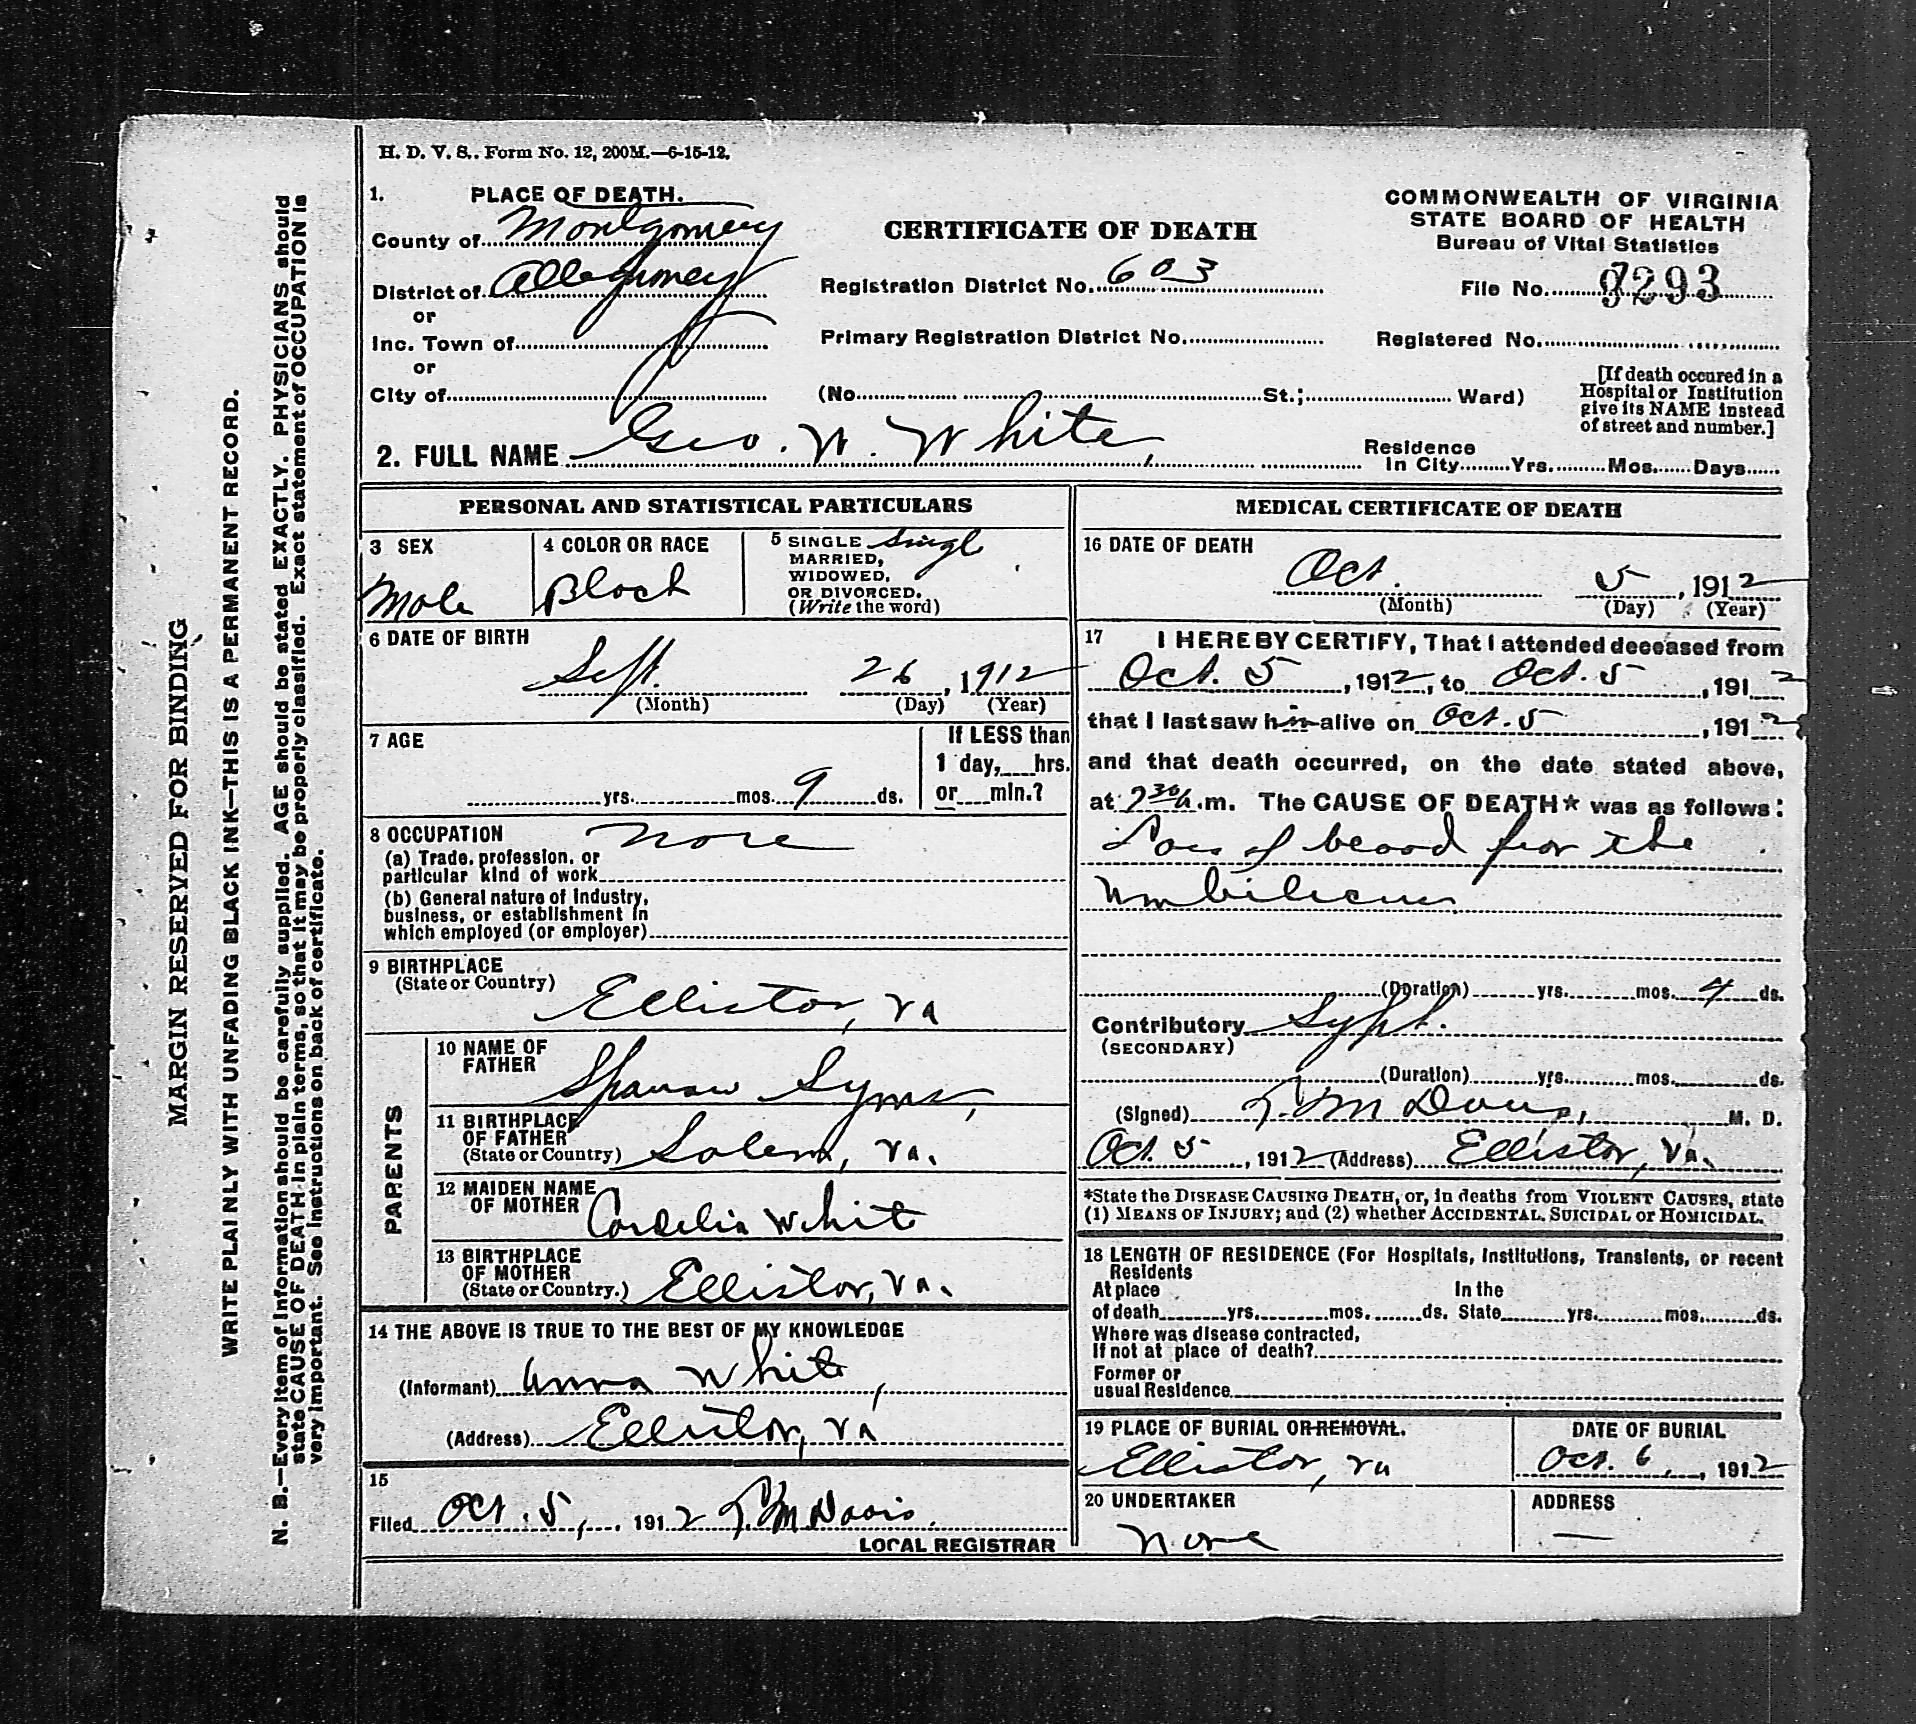 H. D. V. S.. Form No. 12, 200M.—6-15-12.
1. PLACE OF DEATH.
County of Montgomery
District of Alleghaney
or
Inc. Town of
or
City of
CERTIFICATE OF DEATH
Registration District No. 603
Primary Registration District No.
(No. St.; Ward)
COMMONWEALTH OF VIRGINIA
STATE BOARD OF HEALTH
Bureau of Vital Statistics
File No. 9293
Registered No.
[If death occured in a
Hospital or Institution
give its NAME instead
of street and number.]
2. FULL NAME Geo. W. White,
Residence
In City Yrs. Mos. Days
PERSONAL AND STATISTICAL PARTICULARS
3 SEX
Male
4 COLOR OR RACE
Black
5 SINGLE Singl
MARRIED,
WIDOWED,
OR DIVORCED.
(Write the word)
6 DATE OF BIRTH
Sept. 26, 1912
(Month) (Day) (Year)
7 AGE
yrs. mos. 9 ds.
If LESS than
1 day, hrs.
or min.?
8 OCCUPATION None
(a) Trade, profession, or
particular kind of work
(b) General nature of Industry,
business, or establishment in
which employed (or employer)
9 BIRTHPLACE
(State or Country)
Elliston, Va
PARENTS
10 NAME OF
FATHER
Syms,
11 BIRTHPLACE
OF FATHER
(State or Country) Salem, Va.
12 MAIDEN NAME
OF MOTHER Cordelia White
13 BIRTHPLACE
OF MOTHER
(State or Country.) Elliston, Va.
14 THE ABOVE IS TRUE TO THE BEST OF MY KNOWLEDGE
(Informant) Anna White,
(Address) Elliston, Va
15
Filed Oct. 5, 1912 T. M. Davis.
LOCAL REGISTRAR
MEDICAL CERTIFICATE OF DEATH
16 DATE OF DEATH
Oct. 5, 1912
(Month) (Day) (Year)
17 I HEREBY CERTIFY, That I attended deceased from
Oct. 5, 1912, to Oct. 5, 1912
that I last saw him alive on Oct. 5, 1912
and that death occurred, on the date stated above,
at 30 .m. The CAUSE OF DEATH* was as follows:
Loss of blood from the
Umbilicus
(Duration) yrs. mos. ds.
Contributory Syph.
(SECONDARY)
(Duration) yrs. mos. ds.
(Signed) T. M. Davis, M. D.
Oct. 5, 1912 (Address) Elliston, Va.
*State the DISEASE CAUSING DEATH, or, in deaths from VIOLENT CAUSES, state
(1) MEANS OF INJURY; and (2) whether ACCIDENTAL, SUICIDAL or HOMICIDAL.
18 LENGTH OF RESIDENCE (For Hospitals, Institutions, Transients, or recent
Residents
At place In the
of death yrs. mos. ds. State yrs. mos. ds.
Where was disease contracted,
If not at place of death?
Former or
usual Residence
19 PLACE OF BURIAL OR REMOVAL.
Elliston, Va
DATE OF BURIAL
Oct. 6, 1912
20 UNDERTAKER
None
ADDRESS
—
MARGIN RESERVED FOR BINDING
WRITE PLAINLY WITH UNFADING BLACK INK—THIS IS A PERMANENT RECORD.
N. B.—Every item of Information should be carefully supplied. AGE should be stated EXACTLY. PHYSICIANS should
state CAUSE OF DEATH in plain terms, so that it may be properly classified. Exact statement of OCCUPATION is
very important. See instructions on back of certificate.